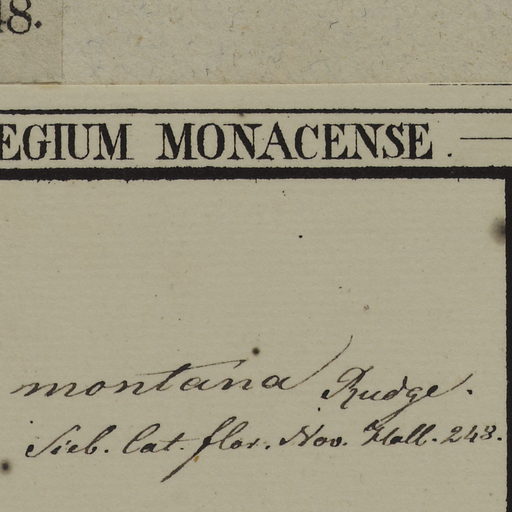 48.
EGIUM MONACENSE.
montana Rudge.
Sieb. Cat. flor. Nov. Holl. 243.